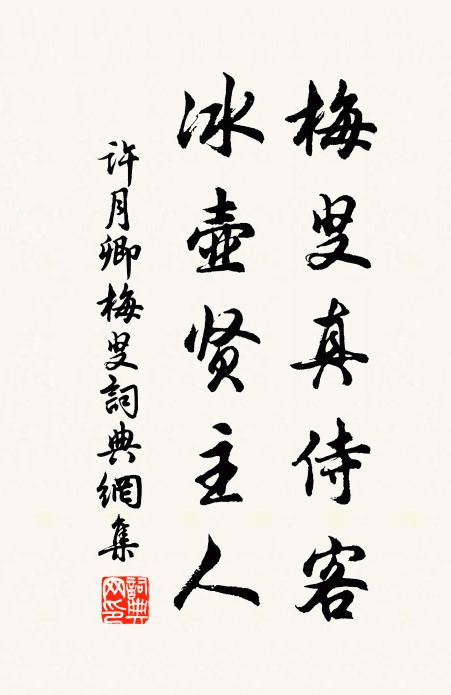 梅叟真侍客
冰壶贤主人
许月卿梅叟詞典網集
詞典网印